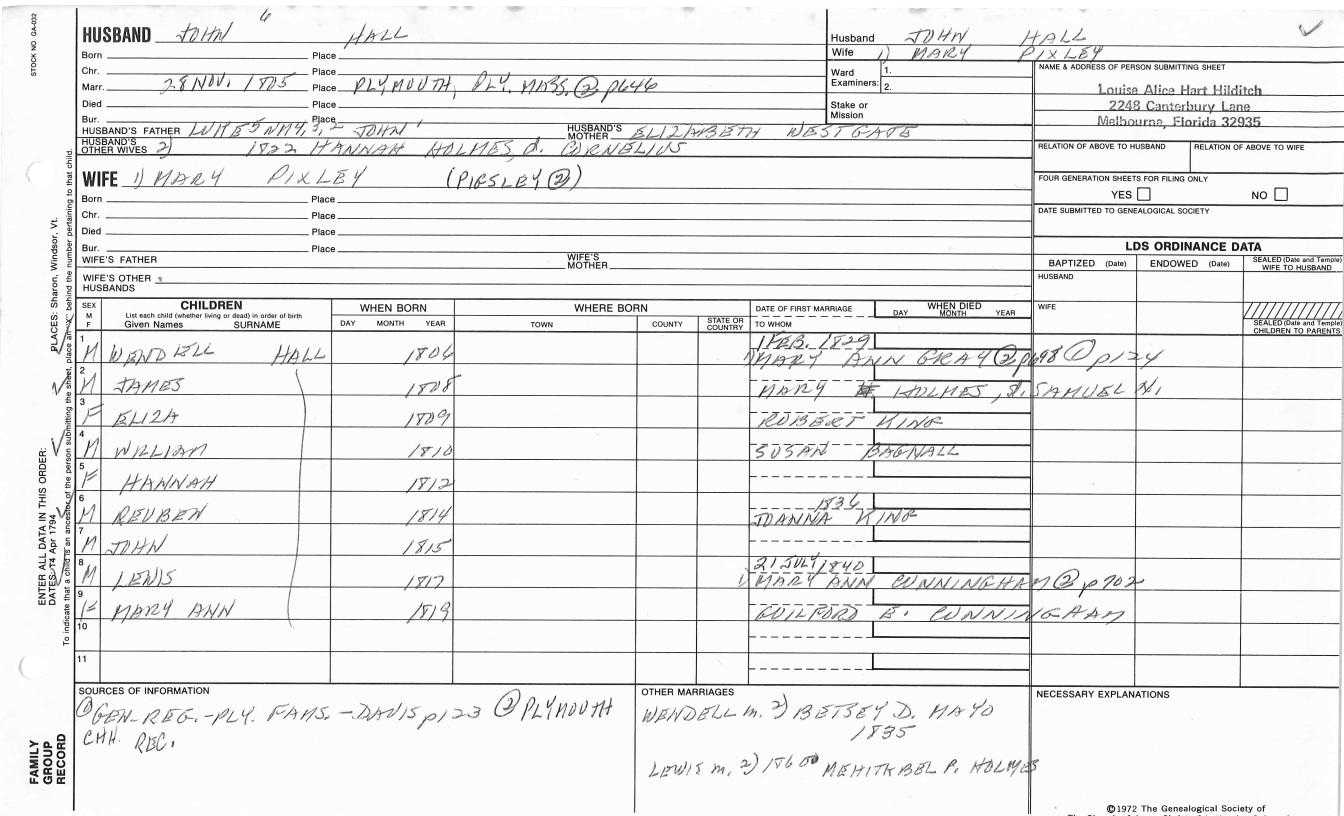 STOCK NO. GA-032
6
HUSBAND JOHN HALL
Born Place
Chr. Place
Marr. 28 NOV. 1805 Place PLYMOUTH, PLY. MASS. ② p646
Died Place
Bur. Place
HUSBAND'S FATHER LUKE 5 JOHN 1
HUSBAND'S MOTHER ELIZABETH WESTGATE
HUSBAND'S OTHER WIVES 2) 1822 HANNAH HOLMES, d. CORNELIUS
WIFE 1) MARY PIXLEY (PIGSLEY ②)
Born Place
Chr. Place
Died Place
Bur. Place
WIFE'S FATHER
WIFE'S MOTHER
WIFE'S OTHER HUSBANDS
Husband JOHN HALL
Wife 1) MARY PIXLEY
Ward Examiners: 1. 2.
Stake or Mission
NAME & ADDRESS OF PERSON SUBMITTING SHEET
Louise Alice Hart Hilditch
2248 Canterbury Lane
Melbourne, Florida 32935
RELATION OF ABOVE TO HUSBAND RELATION OF ABOVE TO WIFE
FOUR GENERATION SHEETS FOR FILING ONLY
YES NO
DATE SUBMITTED TO GENEALOGICAL SOCIETY
LDS ORDINANCE DATA
BAPTIZED (Date) ENDOWED (Date) SEALED (Date and Temple) WIFE TO HUSBAND
HUSBAND
WIFE
SEALED (Date and Temple) CHILDREN TO PARENTS
SEX M F
CHILDREN
List each child (whether living or dead) in order of birth
Given Names SURNAME
WHEN BORN
DAY MONTH YEAR
WHERE BORN
TOWN COUNTY STATE OR COUNTRY
DATE OF FIRST MARRIAGE
TO WHOM
WHEN DIED
DAY MONTH YEAR
1 M WENDELL HALL 1806 1 FEB. 1829 1) MARY ANN GRAY ② p698 ① p124
2 M JAMES 1808 MARY HOLMES, d. SAMUEL N.
3 F ELIZA 1809 ROBERT KING
4 M WILLIAM 1810 SUSAN BAGNALL
5 F HANNAH 1812
6 M REUBEN 1814 1836 JOANNA KING
7 M JOHN 1815
8 M LEWIS 1817 21 JULY 1840 1) MARY ANN CUNNINGHAM ② p702
9 F MARY ANN 1819 GUILFORD E. CUNNINGHAM
10
11
SOURCES OF INFORMATION
① GEN. REG. - PLY. FAMS. - DAVIS p123 ② PLYMOUTH
CHH. REC.
OTHER MARRIAGES
WENDELL m. 2) BETSEY D. MAYO
1835
LEWIS m. 2) 1860 MEHITABEL P. HOLMES
NECESSARY EXPLANATIONS
©1972 The Genealogical Society of
ENTER ALL DATA IN THIS ORDER:
DATES: 14 Apr 1794 PLACES: Sharon, Windsor, Vt.
To indicate that a child is an ancestor of the person submitting the sheet, place an "X" behind the number pertaining to that child.
FAMILY GROUP RECORD